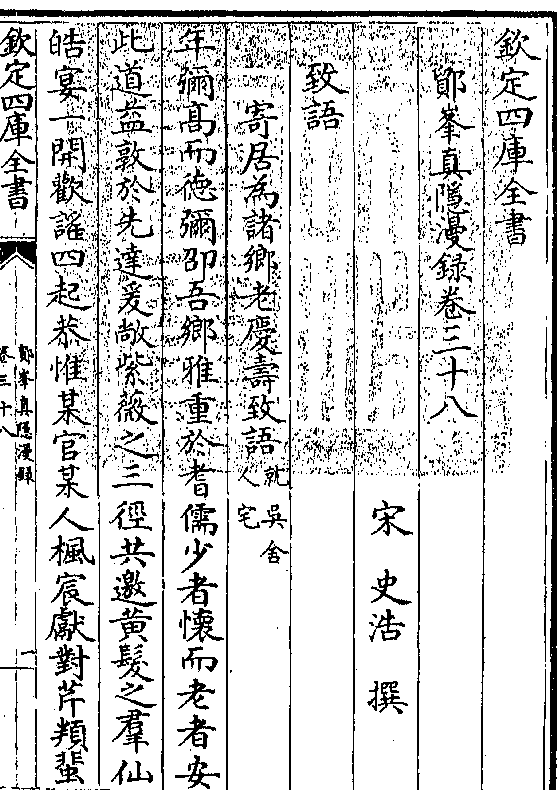 欽定四庫全書
鄮峯真隱漫録卷三十八
宋 史浩 撰
致語
寄居為諸鄉老慶壽致語就吳舍人宅
年彌髙而徳彌卲吾鄉雅重於耆儒少者懷而老者安
此道益敦於先達爰敞紫薇之三徑共邀黃髪之羣仙
皓宴一開歡謡四起恭惟某官某人楓宸獻對芹頖蜚
欽定四庫全書
鄮峯真隱漫録
卷三十八
一